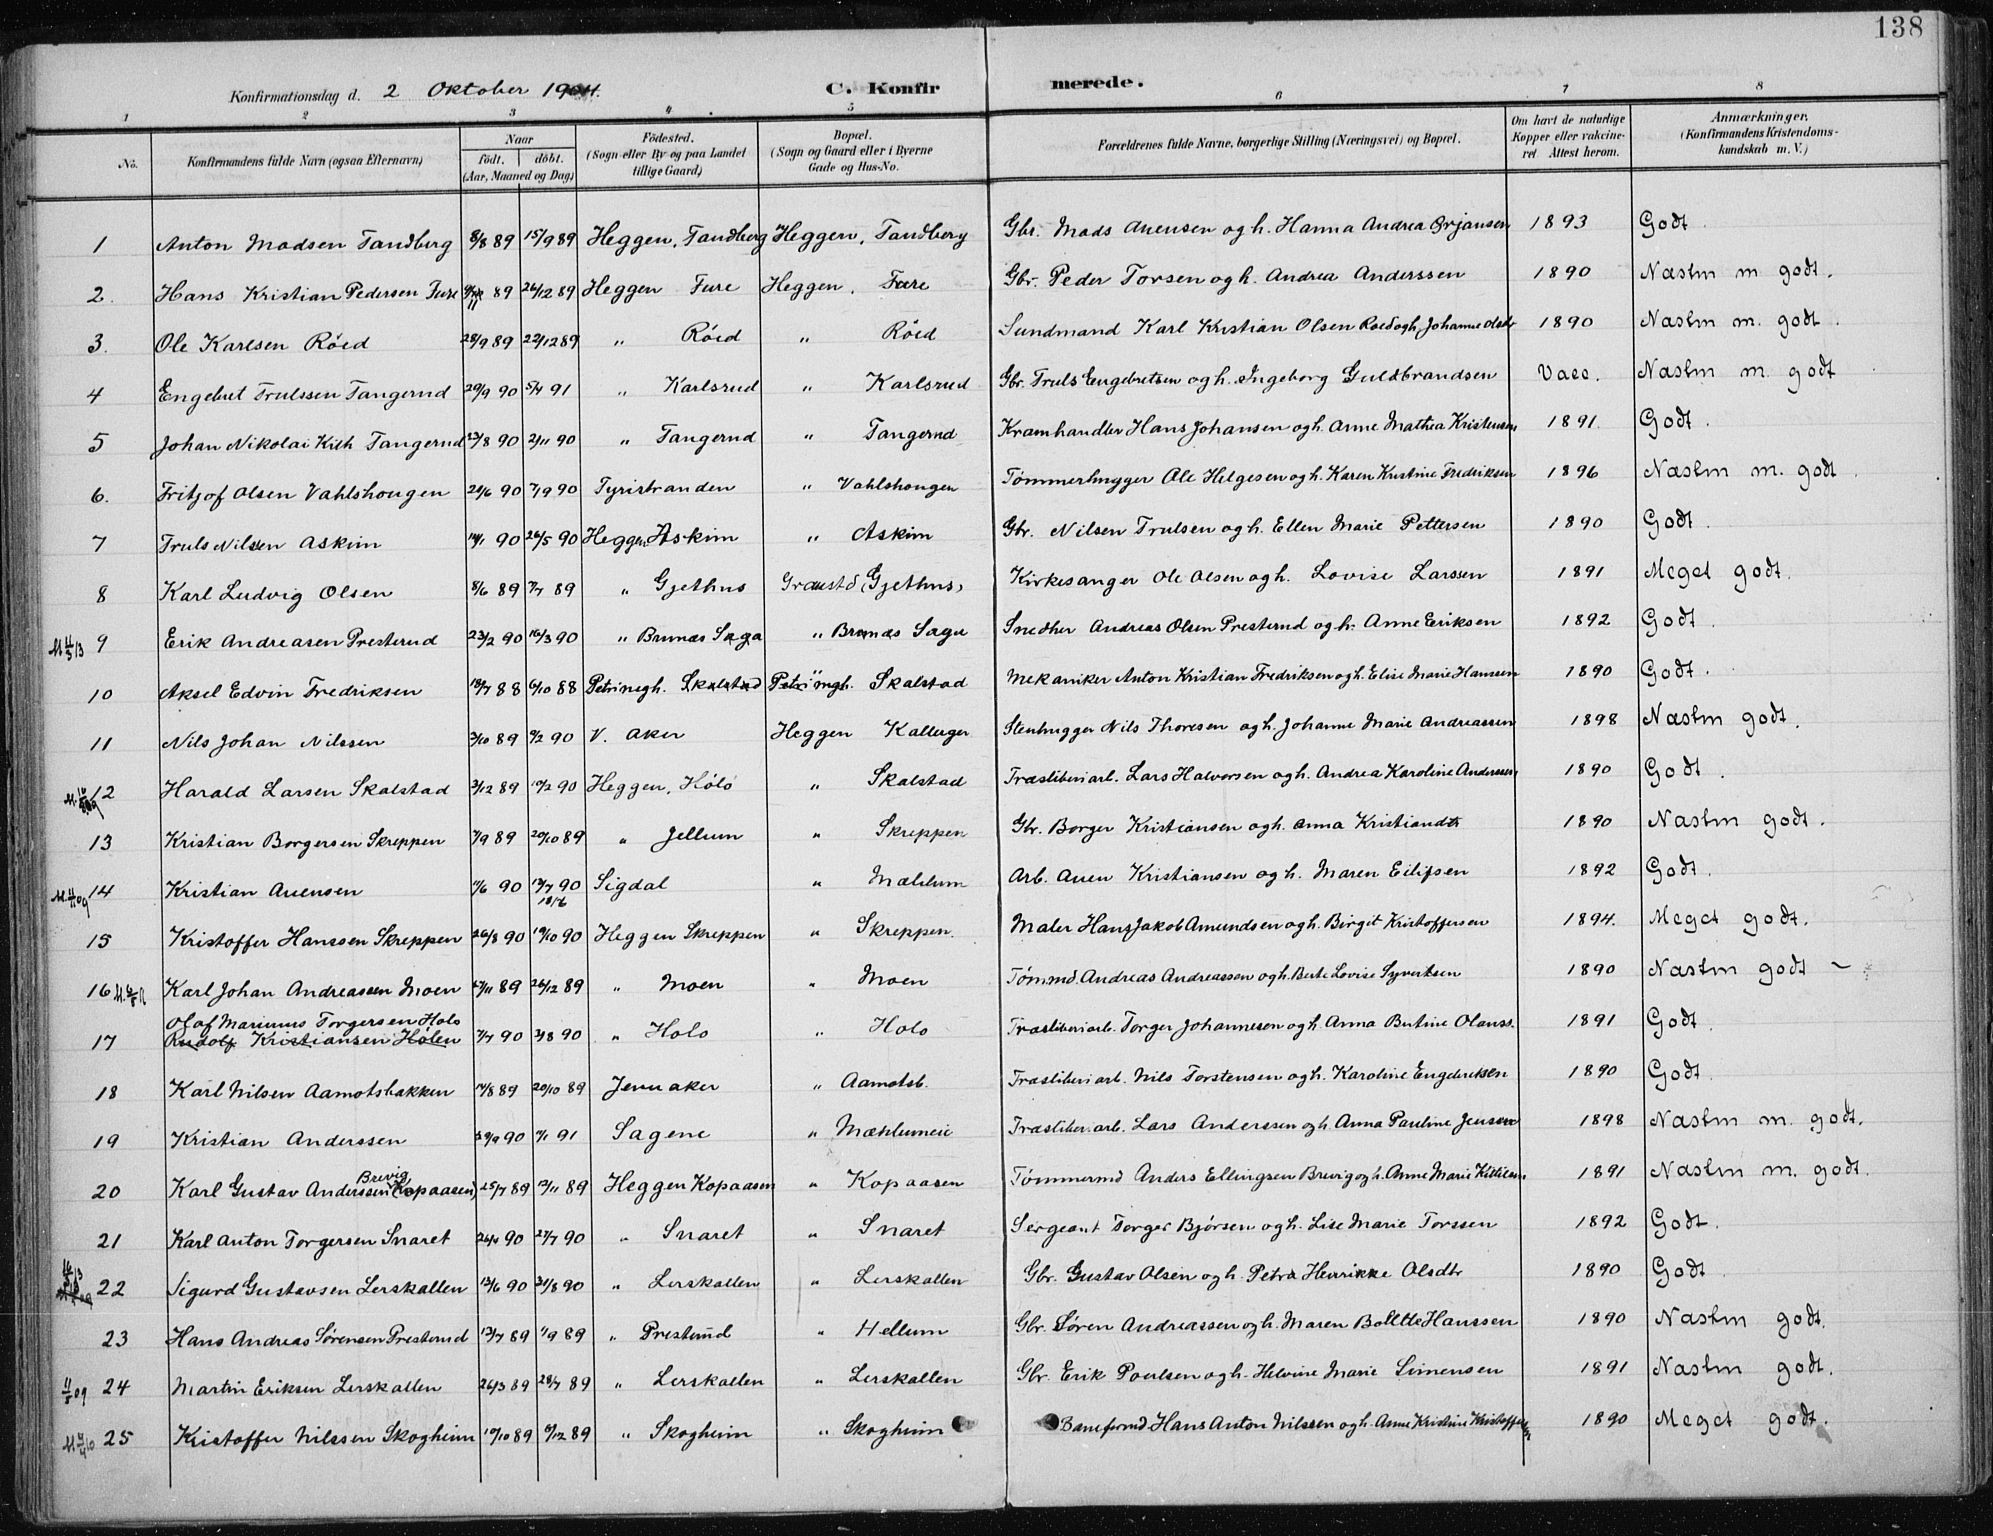 138
Konfirmationsdag d. 2 Oktober 1904. C. Konfirmerede.
1 2 3 4 5 6 7 8
No. Konfirmandens fulde Navn (ogsaa Efternavn) Naar födt. döbt. (Aar, Maaned og Dag) Födested. (Sogn eller By og paa Landet tillige Gaard) Bopæl. (Sogn og Gaard eller i Byerne Gade og Hus-No. Forældrenes fulde Navne, borgerlige Stilling (Næringsvei) og Bopæl. Om havt de naturlige Kopper eller vakcineret. Attest herom. Anmærkninger. (Konfirmandens Kristendomskundskab m. V.)
1 Anton Madsen Tandberg 8/8 89 15/9 89 Heggen, Tandberg Heggen, Tandberg Gbr. Mads Auensen og h. Hanna Andrea Ørjansen 1893 Godt.
2. Hans Kristian Pedersen Fure 89 26/12 89 Heggen Fure Heggen, Fure Gbr. Peder Torsen og h. Andrea Anderssen 1890 Næstm m godt.
3. Ole Karlsen Röed 28/9 89 22/12 89 " Röed " Röed Sundmand Karl Kristian Olsen Roed og h. Johanne Olsdr 1890 Næstm m. godt.
4 Engebret Trulssen Tangerud 29/9 90 5/4 91 " Karlsrud " Karlsrud Gbr. Truls Engebretsen og h. Ingeborg Guldbrandsen Vacc. Næstm m. godt
5 Johan Nikolai Kith Tangerud 23/8 90 2/11 90 " Tangerud " Tangerud Kramhandler Hans Johansen og h. Anne Mathea Kristensen 1891. Godt.
6. Fritjof Olsen Vahlshougen 21/6 90 7/9 90 Tyristranden " Vahlshougen Tømmerhugger Ole Helgesen og h. Karen Kristine Fredriksen 1896 Næstm m. godt.
7 Truls Nilsen Askim 14/1 90 26/5 90 Heggen Askim " Askim Gbr. Nilsen Trulsen og h. Ellen Marie Pettersen 1890 Godt.
8 Karl Ludvig Olsen 8/6 89 7/7 89 " Gjethus Graustd (Gjethus) Kirkesanger Ole Olsen og h. Lovise Larssen 1891 Meget godt.
9 Erik Andreasen Presterud 23/2 90 16/3 90 " Brunæs Saga " Brunæs Sage Snedker Andreas Olsen Presterud og h. Anne Eriksen 1892 Godt.
10 Aksel Edvin Fredriksen 18/7 88 6/10 88 Petrinegh. Skalstad Petrimgh. Skalstad Mekaniker Anton Kristian Fredriksen og h. Elise Marie Hanssen 1890 Godt.
11 Nils Johan Nilssen 3/10 89 9/2 90 V. Aker Heggen Kallager Stenhugger Nils Thoresen og h. Johanne Marie Andreassen 1898 Næstm godt.
12 Harald Larsen Skalstad 3/12 89 10/2 90 Heggen, Hölö " Skalstad Træsliberiarb. Lars Halvorsen og h. Andrea Karoline Anderssen 1890 Godt.
13 Kristian Borgersen Skreppen 7/9 89 20/10 89 " Jellum " Skreppen Gbr. Borger Kristiansen og h. Anna Kristiansdtr 1890 Næstm godt.
14 Kristian Auensen 11/6 90 13/7 90 Sigdal " Mæhlum Arb. Auen Kristiansen og h. Maren Eilifsen 1892 Godt.
15 Kristoffer Hanssen Skreppen 26/8 90 19/10 90 Heggen Skreppen " Skreppen. Maler Hans Jakob Amundsen og h. Birgit Kristoffersen 1894. Meget godt.
16 Karl Johan Andreassen Moen 17/11 89 26/12 89 " Moen " Moen Tømmd. Andreas Andreassen og h. Berte Lovise Syvertsen 1890 Næstm godt
Olaf Marinius Torgersen Holo
17 Rudolf Kristiansen Hølen 7/7 90 3/8 90 " Holo " Holo Træsliberiarb. Torger Johannesen og h. Anna Bertine Olauss. 1891 Godt.
18 Karl Nilsen Aamotsbakken 14/8 89 20/10 89 Jevnaker " Aamotsb. Træsliberiarb. Nils Torstensen og h. Karoline Engebriksen 1890 Godt.
19 Kristian Anderssen 29/9 90 11/1 91 Sagene " Mæhlumeie Træsliber.arb. Lars Anderssen og h. Anna Pauline Jenssen 1898 Næstm m. godt.
Brevig
20 Karl Gustav Anderssen (Kopaasen) 25/7 89 17/11 89 Heggen Kopaasen " Kopaasen Tømmermd Anders Ellingsen Brevig og h. Anne Marie Kittilsen 1891 Næstm m. godt.
21 Karl Anton Torgersen Snaret 26/4 90 27/7 90 " Snaret " Snaret Sergeant Torger Bjørsen og h. Lise Marie Torssen 1892 Godt.
22 Sigurd Gustavsen Lerskallen 13/6 90 31/8 90 " Lerskallen " Lerskallen Gbr. Gustav Olsen og h. Petra Henrikke Olsdtr 1890 Godt.
23 Hans Andreas Sørensen Presterud 13/7 89 1/9 89 " Presterud " Hellum Gbr. Søren Andreassen og h. Maren Bollette Hanssen 1890 Næstm godt.
11/5 09 24 Martin Eriksen Lerskallen 26/3 89 28/7 89 " Lerskallen " Lerskallen Gbr. Erik Poulsen og h. Helvine Marie Simensen 1891 Næstm godt.
25 Kristoffer Nilssen Skogheim 17/10 89 8/12 89 " Skogheim " Skogheim Baneformd Hans Anton Nilssen og h. Anne Kristine Kristoffersen 1890 Meget godt.